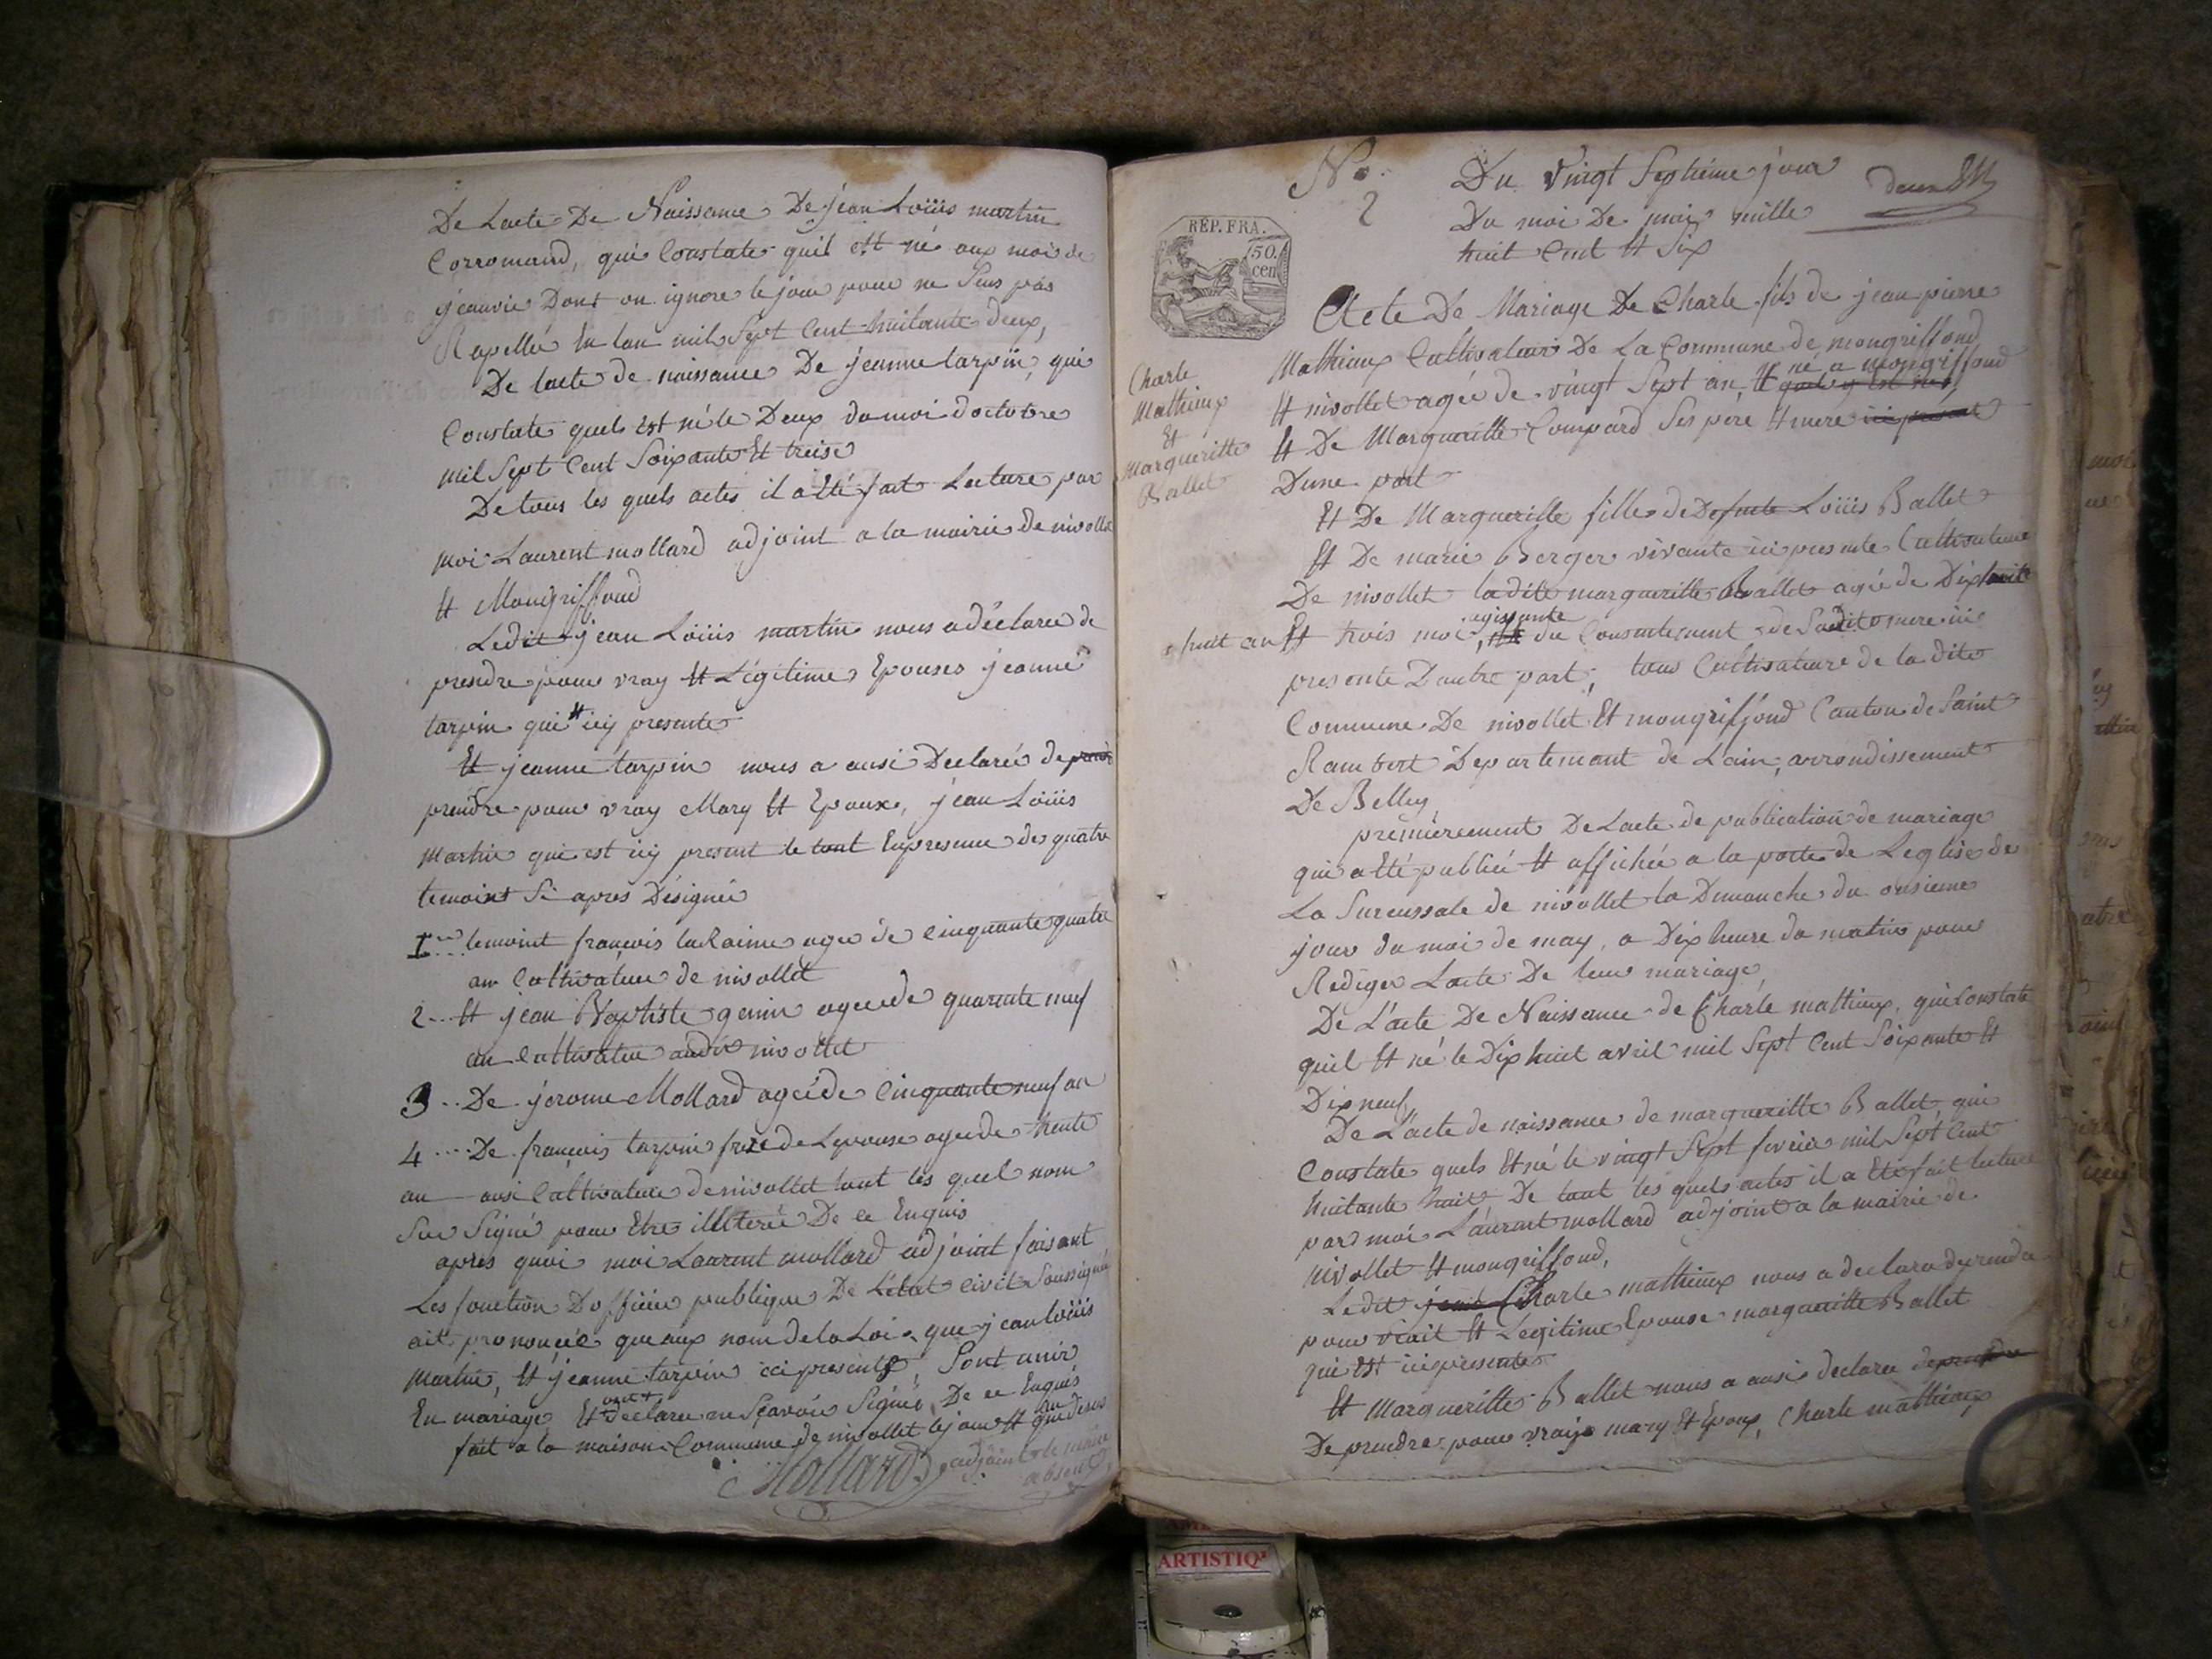 De Lacte De Naissance De jean Loüis martin
Corromand, qui Constate quil Ett né aux moi de
jeanvie Dont on ignore le jour pour ne Sens pas
Rapellé En lan mil Sept Cent huitante deux,
De lacte de naissance De jeanne tarpin, qui
Constate quels est né le Deux du moi doctobre
mil Sept Cent Soixante Et treise
De tous les quels actes il a Eté fait Lecture par
moi Laurent mollard adjoint a la mairie de nivollet
Et Mongriffond
Ledit jean Loüis martin nous a déclaree de
prendre pour vray Et Légitime Epouses jeanne
tarpin qui Et icy presente
Et jeanne tarpin nous a ausi Déclaréé de
prendre pour vray Mary Et Epoux, jean Loüis
Martin qui est icy present le tout Enpresence de quatre
temoint Si apres Désigneé
1er temoint francois laRaime agee de cinquante quatre
an Cultivateur de nivollet
2... Et jean Baptiste genin ageede quarante neuf
an Cultivateur audit nivollet
3.. De jerome Mollard ageéde Cinquante neuf an
4.... De francois tarpin frere de Lepouse ageede trente
an ausi Cultivateur denivollet tout les quel nom
Sue Signé pour Etre illiteré De ce Enquis
apres quoi moi Laurant mollard adjoint faisant
Les fonction Dofficiee publique De Létat civil Soussigné
ait prononceé que aux nom de la Loi, que jean loüis
Martin, Et jeanne tarpin ici present, Sont unir
En mariage Et ont declaree ne Scavoir Signé, De ce Enquis
fait a la maison Commune de nivollet le jour Et an que desus
Mollard adjoint le maire
absent
No. Du Vingt Septiéme jour
2 Du moi De mai mille
huit Cent Et Six
deux
REP. FRA.
50.
cen
Acte De Mariage De Charle fils de jean pierre
Mathieux Cultivateur De La Commune de mongriffond
Et nivollet ageé de vingt Sept an, Et né a mongriffond
Et De Margueritte Compard Ses pere Et mere
Dune part
Charle
Mathieux
Et
Margueritte
Ballet
Et De Margueritte fille de Defunte Loüis Ballet
Et De marie Berger vivante ici presente Cultivateure
De nivollet ladite margueritte Ballet ageé de Dix huit
huit an Et trois moi, agissante du Consentement de Sadite mere ici
presente Dautre part, tous Cultivateure de la dite
Commune De nivollet Et mongriffond Canton de Saint
Rambert Departemant de Lain, arrondissement
De Belley
premiérement De Lacte de publication de mariage
qui a Eté publieé Et affichée a la porte de Leglise de
La Sucussale de nivollet la Dimanche du onsieme
jour du moi de may, a Dix heure du matin pour
Rediger Lacte De leur mariage,
De L'acte De Naissance de Charle mathieux, qui Constate
quil Et né le Dix huit avril mil Sept Cent Soixante Et
Dix neuf,
De Lacte de naissance de margueritte Ballet qui
Constate quels Et né le vingt Sept fevrier mil Sept Cent
huitante huit De tout les quels actes il a Eté fait lecture
par moi Laurant mollard adjoint a la mairie de
Nivollet Et mongriffond,
Ledit Charle mathieux nous a declara de prendre
pour vrait Et Legitime Epouse margueritte Ballet
qui Est ici presente
Et Margueritte Ballet nous a ausi declaree
De prendre pour vraye mary Et Epoux, Charle mathieux
ARTISTIQ